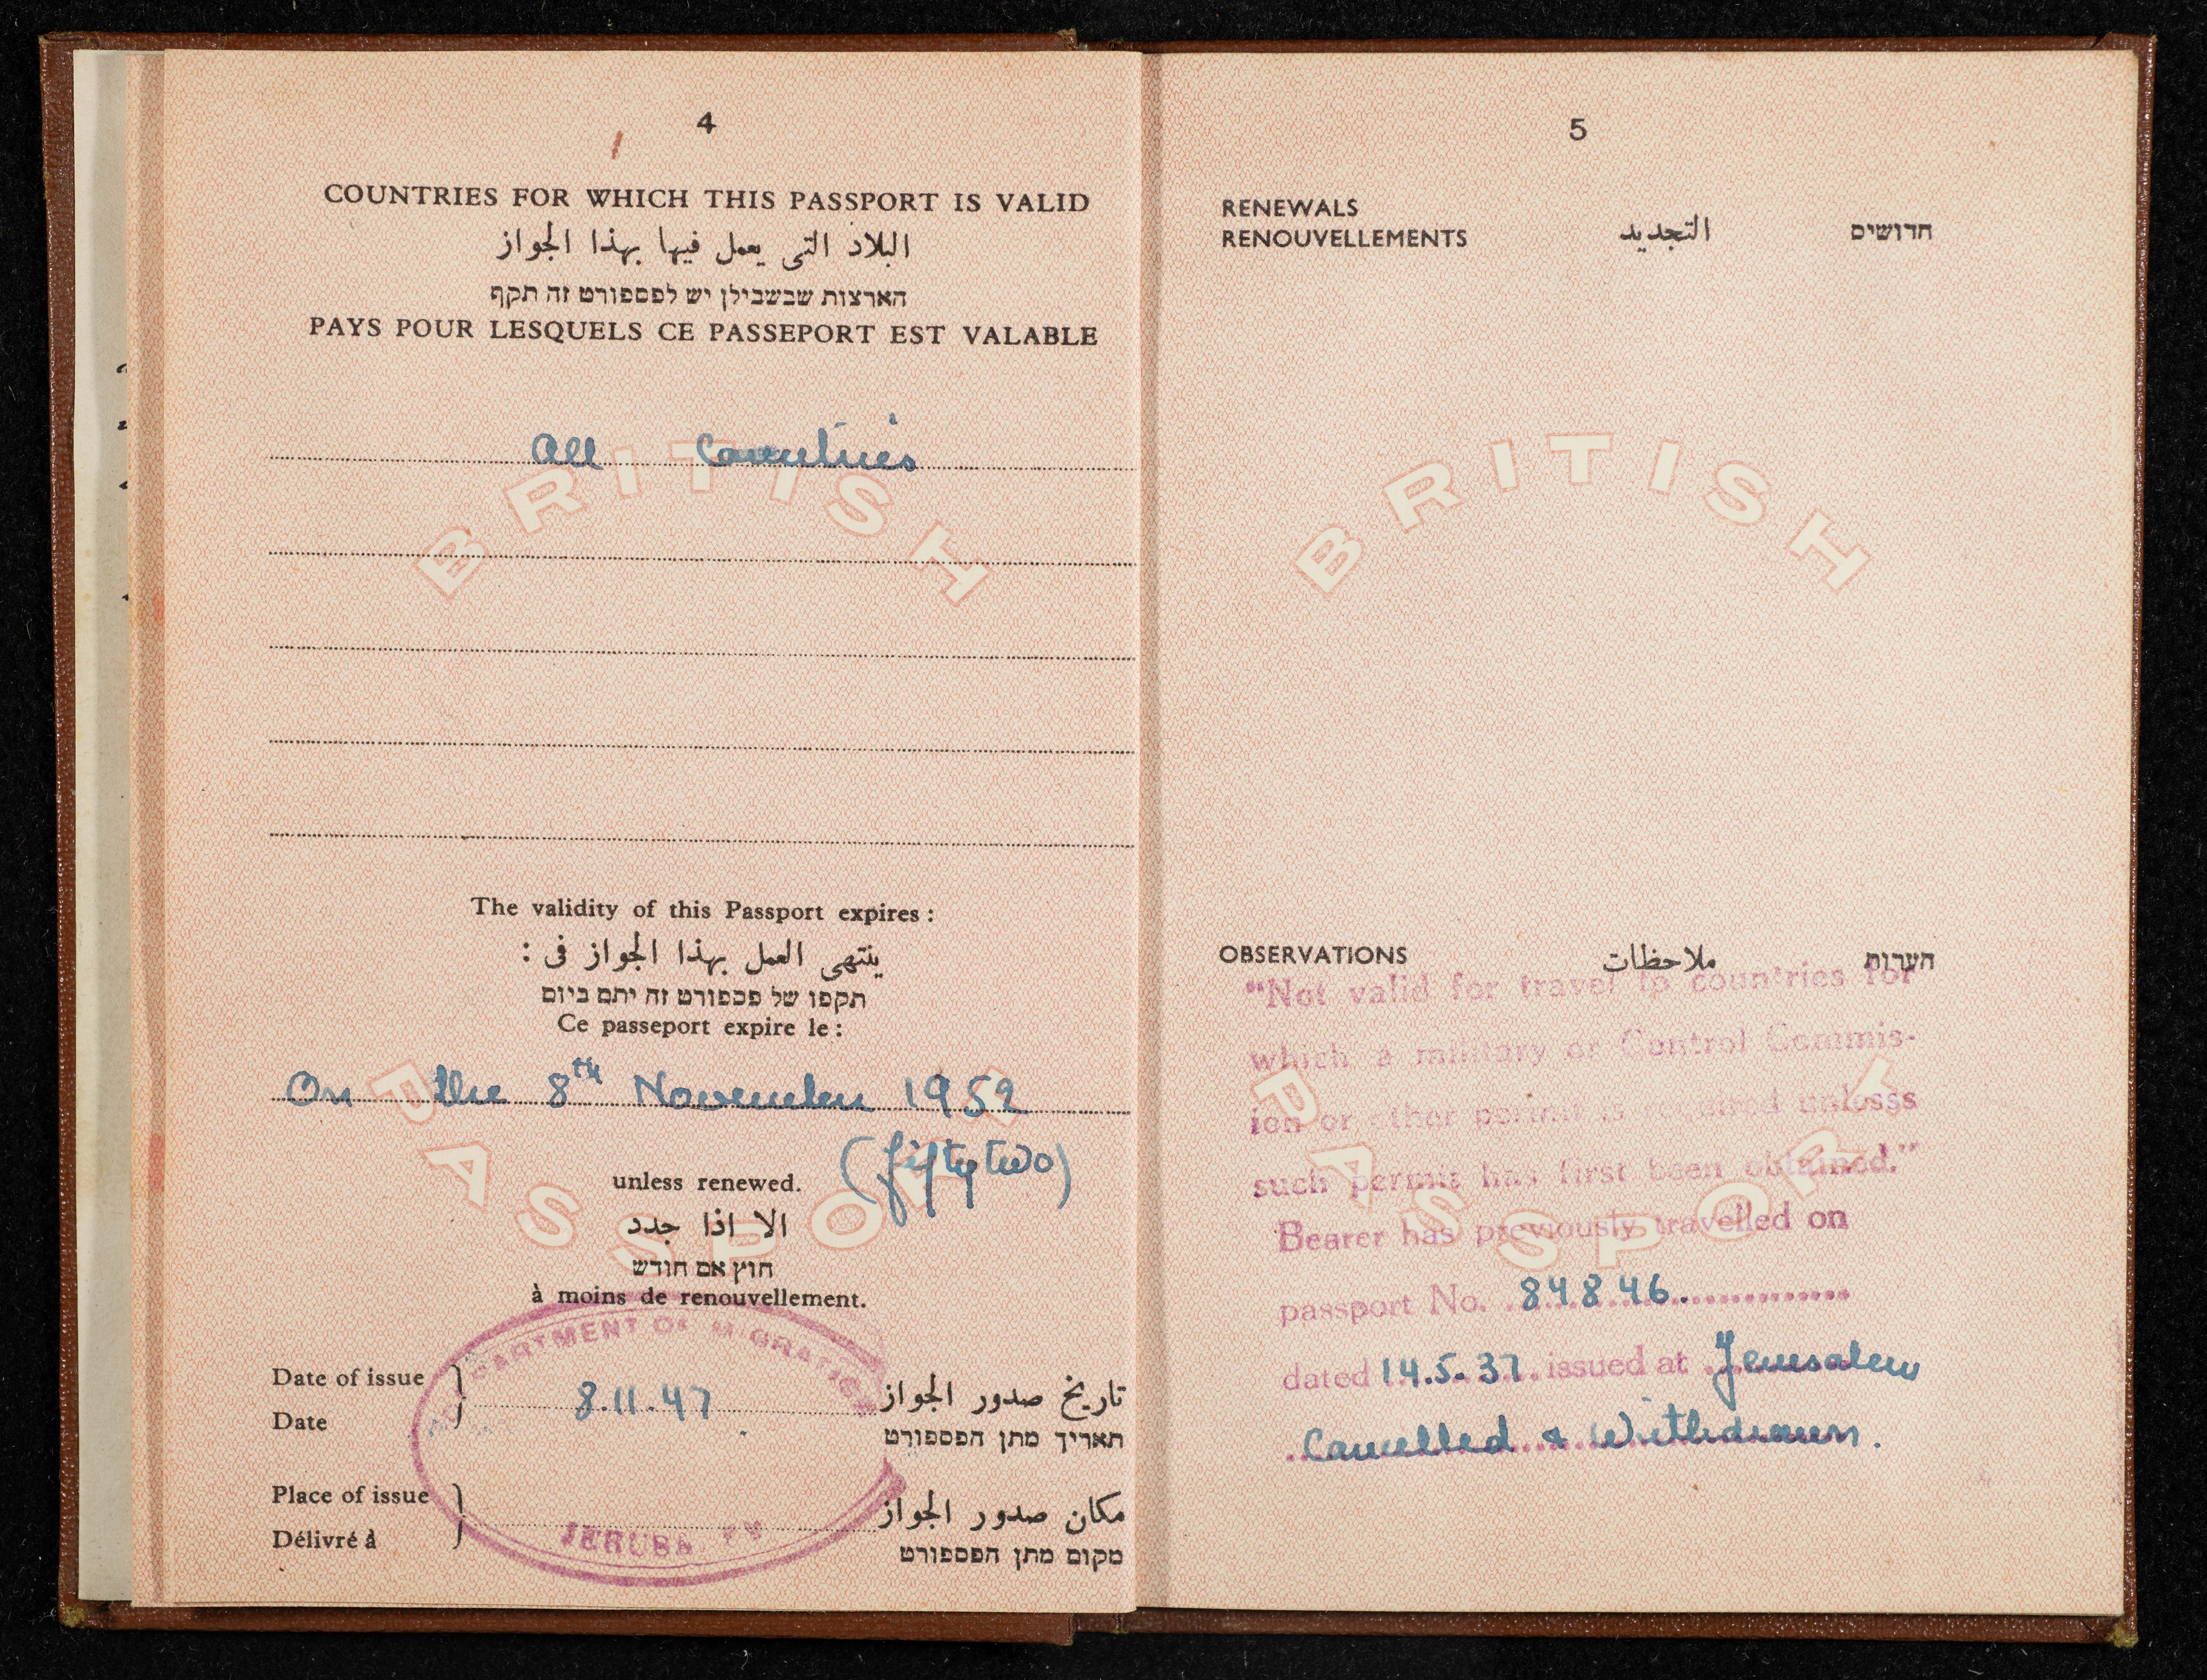 4
COUNTRIES FOR WHICH THIS PASSPORT IS VALID
البلاد التى يعمل فيها بهذا الجواز
הארצות שבשבילן יש לפספורט זה תקף
PAYS POUR LESQUELS CE PASSEPORT EST VALABLE
All Countries
BRITISH
The validity of this Passport expires :
ينتهى العمل بهذا الجواز فى :
תקפו של פספורט זה יתם ביום
Ce passeport expire le :
On the 8th November 1952
(fifty two)
unless renewed.
الا اذا جدد
חוץ אם חודש
à moins de renouvellement.
PASSPORT
DEPARTMENT OF MIGRATION
Date of issue
Date
8.11.47
تاريخ صدور الجواز
תאריך מתן הפספורט
Place of issue
Délivré à
JERUSALEM
مكان صدور الجواز
מקום מתן הפספורט
5
RENEWALS
RENOUVELLEMENTS
التجديد
חדושים
BRITISH
OBSERVATIONS ملاحظات הערות
"Not valid for travel to countries for
which a military or Control Commis-
ion or other permit is required unlesss
such permit has first been obtained."
Bearer has previously travelled on
passport No. 84846
dated 14.5.37. issued at Jerusalem
Cancelled & Withdrawn.
PASSPORT